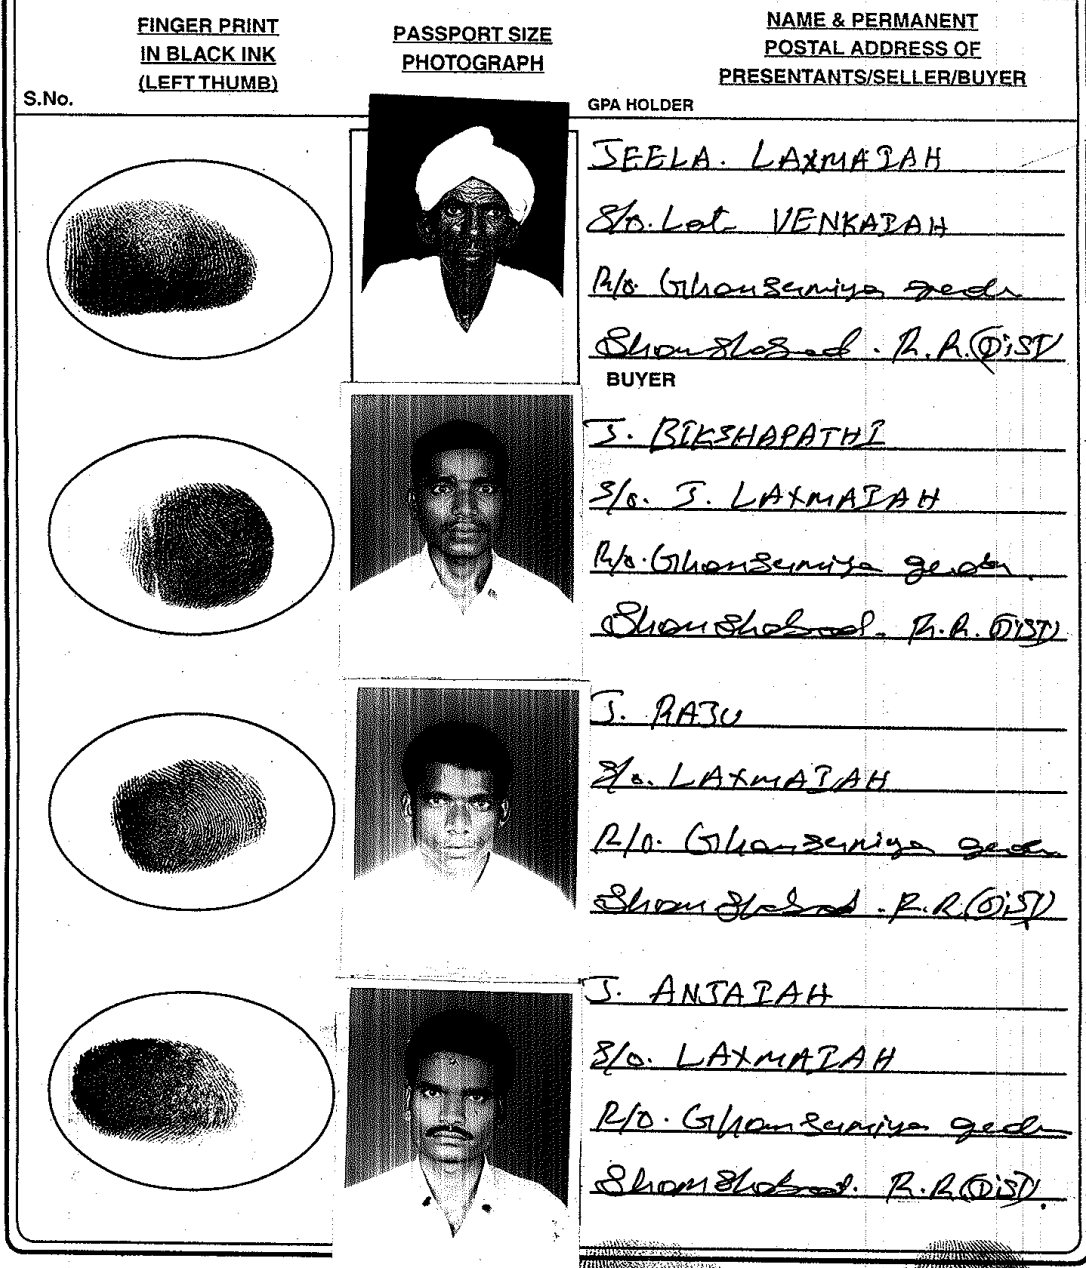 FINGER PRINT
IN BLACK INK
(LEFT THUMB)
PASSPORT SIZE
PHOTOGRAPH
NAME & PERMANENT
POSTAL ADDRESS OF
PRESENTANTS/SELLER/BUYER
S.No.
GPA HOLDER
JEELA. LAXMAIAH
S/o. Late VENKAIAH
R/o. Ghansumiya geda
Shamshabad. R.R. DIST
BUYER
J. BIKSHAPATHI
S/o. J. LAXMAIAH
R/o. Ghansumiya geda
Shamshabad. R.R. DIST
J. RAJU
S/o. LAXMAIAH
R/o. Ghansumiya geda
Shamshabad. R.R. DIST
J. ANJAIAH
S/o. LAXMAIAH
R/o. Ghansumiya geda
Shamshabad. R.R. DIST.